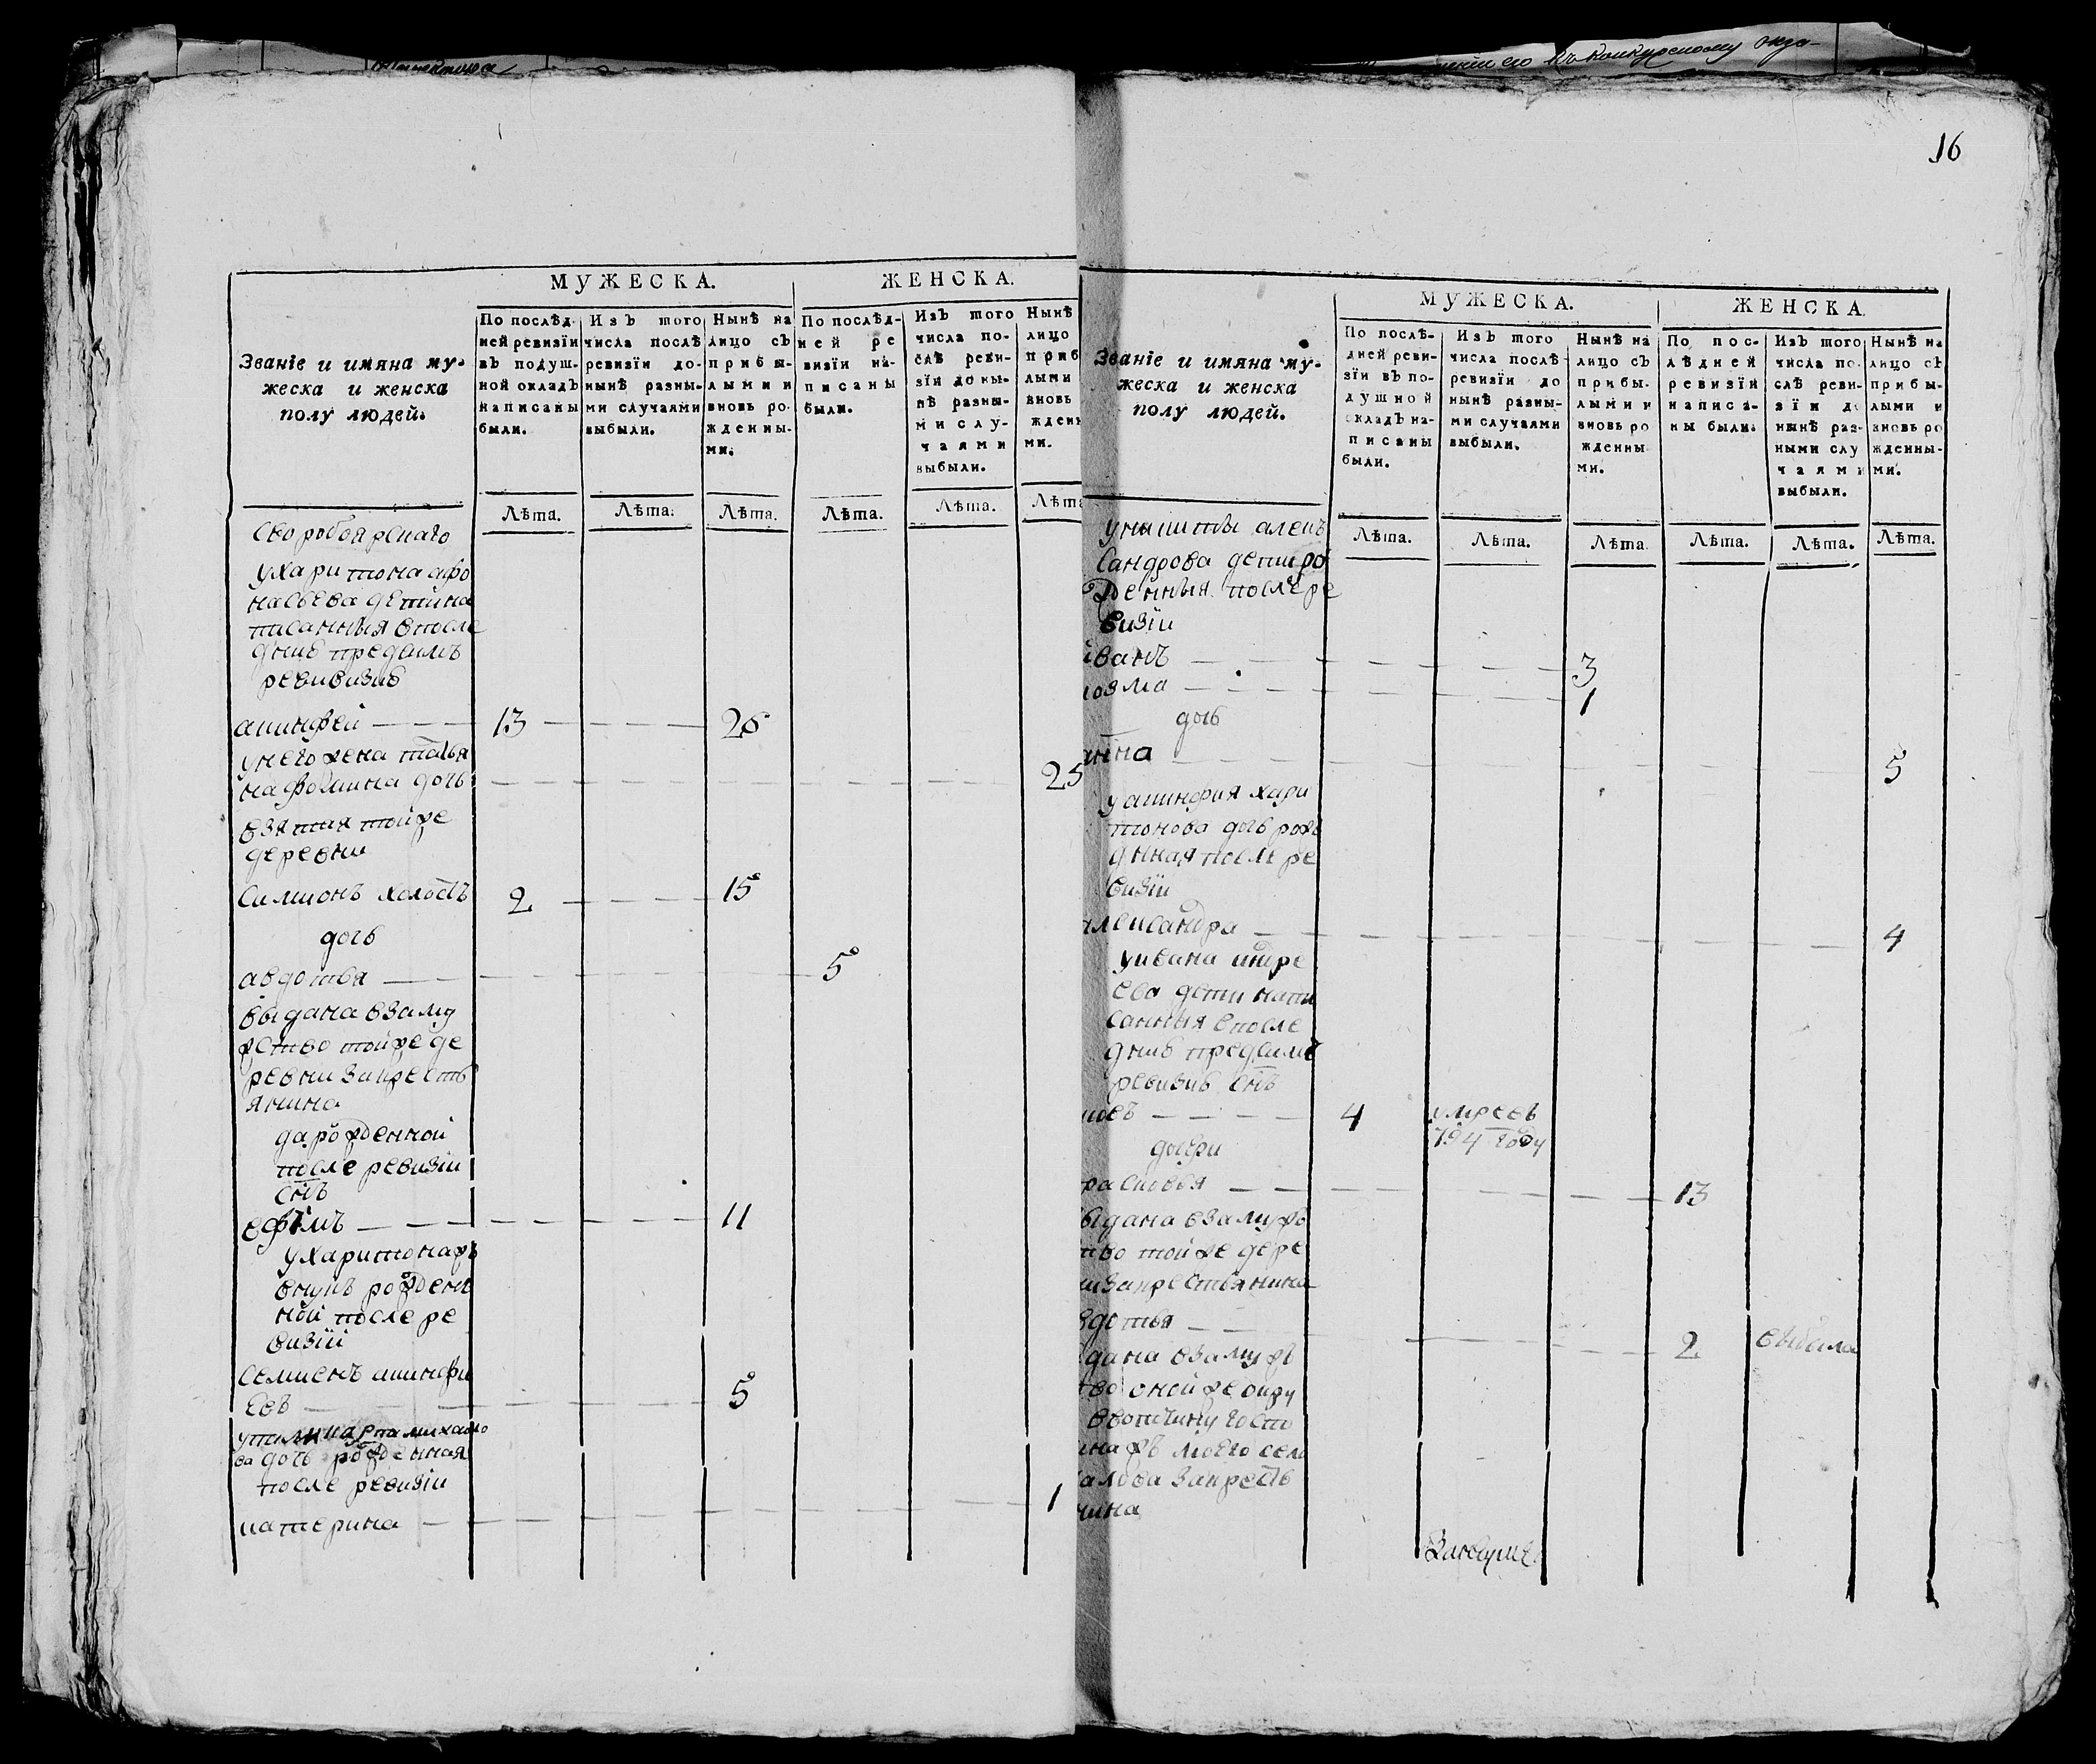 16
МУЖЕСКА.
ЖЕНСКА.
Званіе и имяна му-
жеска и женска
полу людей.
По послѣд-
ней ревизіи
въ подуш-
ной окладъ
написаны
были.
Изъ того
числа послѣ
ревизіи до-
нынѣ разны-
ми случаями
выбыли.
Нынѣ на
лицо съ
прибы-
лыми и
вновь ро-
жденны-
ми.
По послѣд-
ней ре
визіи на-
писаны
были.
Изъ того
числа по-
слѣ реви-
зіи до ны-
нѣ разны-
ми слу-
чаями
выбыли.
Нынѣ
лицо
приб
лыми
вновь
жден
ми.
Лѣта.
Лѣта.
Лѣта.
Лѣта.
Лѣта.
Лѣта
ухаритона афо
насьева дети на
писанныя впосле
днюю предъ симъ
ревизию
акинфей 13 26
унего жена татья
на фомина дочь 25
взятая тойже
деревни
Симионъ холостъ 2 15
дочь
авдотья 5
выдана взаму
жство тойже де
ревни закресть
янина
да рожденной
после ревизіи
снъ
ефимъ 11
ухаритонажъ
внукъ рожден
ной после ре
визіи
Семионъ акинфи
евъ 5
ва дочь рожденная
после ревизіи
катерина 1
МУЖЕСКА.
ЖЕНСКА.
Званіе и имяна му-
жеска и женска
полу людей.
По послѣ-
дней реви-
зіи въ по-
душной
окладъ на-
писаны
были.
Изъ того
числа послѣ
ревизіи до
нынѣ разны-
ми случаями
выбыли.
Нынѣ на
лицо съ
прибы-
лыми и
вновь ро
жденны
ми.
По пос-
лѣдней
ревизіи
написа-
ны были.
Изъ того
числа по-
слѣ реви-
зіи до
нынѣ раз-
ными слу
чаями
выбыли.
Нынѣ на
лицо съ
прибы-
лыми и
вновь ро
жденны-
ми.
Лѣта.
Лѣта.
Лѣта
Лѣта.
Лѣта.
Лѣта.
уникиты алек
сандрова дети ро
жденныя после ре
визіи
иванъ 3
козма 1
дочь
анна 5
уакинфия хари
тонова дочь рожъ
дная после ре
визіи
александра 4
уивана андре
ева дети напи
санныя впосле
днюю предъ симъ
ревизию снъ
4 умре въ
794 году
дочери
расковья 13
ыдана взамужъ
тво тойже дере
ни закрестьянина
вдотья 2 выбыла
дана взамужъ
тво онойже окру
ги
ввотчину госпо
алова закресть
нина